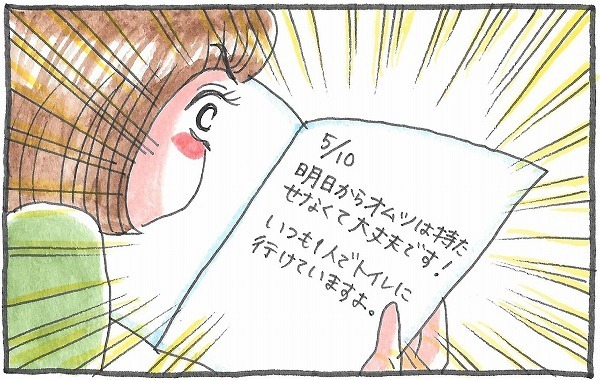 5/10
明日からオムツは持た
せなくて大丈夫です!
いつも1人でトイレに
行けていますよ。